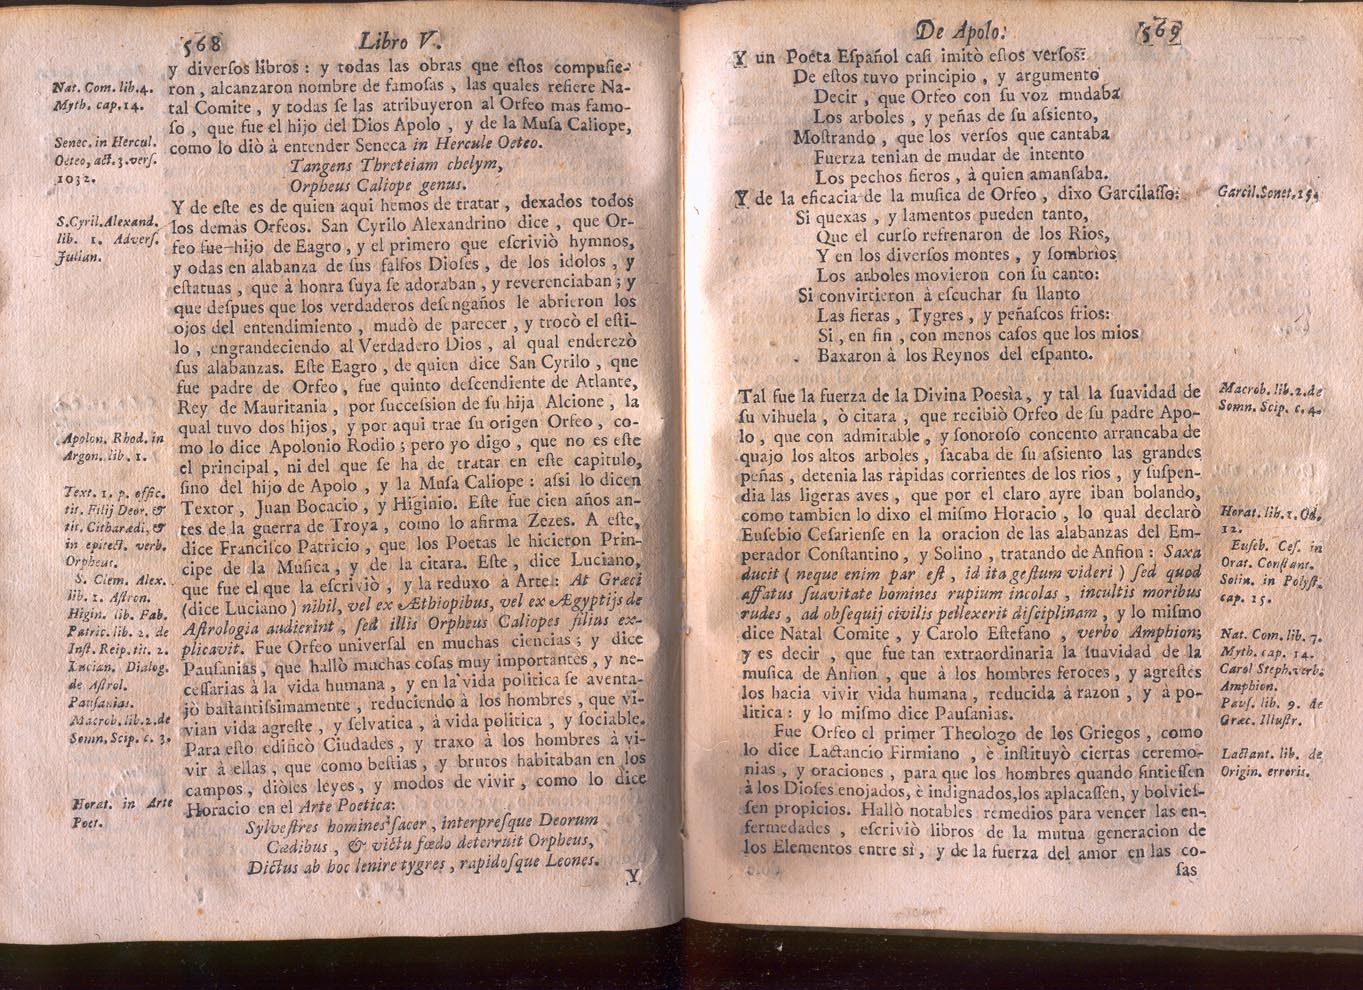 568 Libro V.
y diverſos libros : y todas las obras que eſtos compuſie-
ron , alcanzaron nombre de famoſas , las quales refiere Na-
tal Comite , y todas ſe las atribuyeron al Orfeo mas famo-
ſo , que fue el hijo del Dios Apolo , y de la Muſa Caliope,
como lo diò à entender Seneca in Hercule Oeteo.
Tangens Threteiam chelym,
Orpheus Caliope genus.
Y de eſte es de quien aqui hemos de tratar , dexados todos
los demás Orfeos. San Cyrilo Alexandrino dice , que Or-
feo fue hijo de Eagro , y el primero que eſcriviò hymnos,
y odas en alabanza de ſus falſos Dioſes , de los idolos , y
eſtatuas , que à honra ſuya ſe adoraban , y reverenciaban ; y
que deſpues que los verdaderos deſengaños le abrieron los
ojos del entendimiento , mudò de parecer , y trocò el eſti-
lo , engrandeciendo al Verdadero Dios , al qual enderezò
ſus alabanzas. Eſte Eagro , de quien dice San Cyrilo , que
fue padre de Orfeo , fue quinto deſcendiente de Atlante,
Rey de Mauritania , por ſucceſsion de ſu hija Alcione , la
qual tuvo dos hijos , y por aqui trae ſu origen Orfeo , co-
mo lo dice Apolonio Rodio ; pero yo digo , que no es eſte
el principal, ni del que ſe ha de tratar en eſte capitulo,
ſino del hijo de Apolo , y la Muſa Caliope : aſsi lo dicen
Textor , Juan Bocacio , y Higinio. Eſte fue cien años an-
tes de la guerra de Troya , como lo afirma Zezes. A eſte,
dice Franciſco Patricio , que los Poetas le hicieron Prin-
cipe de la Muſica , y de la citara. Eſte , dice Luciano,
que fue el que la eſcriviò , y la reduxo à Arte : At Græci
(dice Luciano) nihil, vel ex Æthiopibus, vel ex Ægyptijs de
Aſtrologia audierint , ſed illis Orpheus Caliopes filius ex-
plicavit. Fue Orfeo univerſal en muchas ciencias ; y dice
Pauſanias , que hallò muchas coſas muy importantes , y ne-
ceſſarias à la vida humana , y en la vida politica ſe aventa-
jò baſtantiſsimamente , reduciendo à los hombres , que vi-
vian vida agreſte , y ſelvatica , à vida politica , y ſociable.
Para eſto edificò Ciudades , y traxo à los hombres à vi-
vir à ellas , que como beſtias , y brutos habitaban en los
campos, diòles leyes, y modos de vivir , como lo dice
Horacio en el Arte Poetica:
Sylveſtres homines ſacer , interpreſque Deorum
Cædibus , & victu fœdo deterruit Orpheus,
Dictus ab hoc lenire tygres , rapidoſque Leones.
Y
Nat. Com. lib. 4.
Myth. cap. 14.
Senec. in Hercul.
Oeteo, act. 3. verſ.
1032.
S. Cyril. Alexand.
lib. 1. Adverſ.
Julian.
Apolon. Rhod. in
Argon. lib. 1.
Text. 1. p. offic.
tit. Filij Deor. &
tit. Citharædi, &
in epitect. verb.
Orpheus.
S. Clem. Alex.
lib. 1. Aſtron.
Higin. lib. Fab.
Patric. lib. 2. de
Inſt. Reip. tit. 2.
Lucian. Dialog.
de Aſtrol.
Pauſanias.
Macrob. lib. 2. de
Somn. Scip. c. 3.
Horat. in Arte
Poet.
De Apolo. 569
Y un Poeta Eſpañol caſi imitò eſtos verſos:
De eſtos tuvo principio , y argumento
Decir , que Orfeo con ſu voz mudaba
Los arboles , y peñas de ſu aſsiento,
Moſtrando , que los verſos que cantaba
Fuerza tenian de mudar de intento
Los pechos fieros , à quien amanſaba.
Y de la eficacia de la muſica de Orfeo , dixo Garcilaſſo:
Si quexas , y lamentos pueden tanto,
Que el curſo refrenaron de los Rios,
Y en los diverſos montes , y ſombrios
Los arboles movieron con ſu canto:
Si convirtieron à eſcuchar ſu llanto
Las fieras , Tygres , y peñaſcos frios:
Si , en fin , con menos caſos que los mios
Baxaron à los Reynos del eſpanto.
Tal fue la fuerza de la Divina Poesìa , y tal la ſuavidad de
ſu vihuela , ò citara , que recibiò Orfeo de ſu padre Apo-
lo , que con admirable , y ſonoroſo concento arrancaba de
quajo los altos arboles , ſacaba de ſu aſsiento las grandes
peñas , detenia las ràpidas corrientes de los rios , y ſuſpen-
dia las ligeras aves , que por el claro ayre iban bolando,
como tambien lo dixo el miſmo Horacio , lo qual declarò
Euſebio Ceſarienſe en la oracion de las alabanzas del Em-
perador Conſtantino , y Solino , tratando de Anfion : Saxa
ducit ( neque enim par eſt , id ita geſtum videri ) ſed quod
affatus ſuavitate homines rupium incolas , incultis moribus
rudes , ad obſequij civilis pellexerit diſciplinam , y lo miſmo
dice Natal Comite , y Carolo Eſtefano , verbo Amphion;
y es decir , que fue tan extraordinaria la ſuavidad de la
muſica de Anfion , que à los hombres feroces , y agreſtes
los hacia vivir vida humana , reducida à razon , y à po-
litica : y lo miſmo dice Pauſanias.
Fue Orfeo el primer Theologo de los Griegos , como
lo dice Lactancio Firmiano , è inſtituyò ciertas ceremo-
nias , y oraciones , para que los hombres quando ſintieſſen
à los Dioſes enojados, è indignados, los aplacaſſen, y bolvieſ-
ſen propicios. Hallò notables remedios para vencer las en-
fermedades , eſcriviò libros de la mutua generacion de
los Elementos entre sì , y de la fuerza del amor en las co-
ſas
Garcil. Sonet. 15.
Macrob. lib. 2. de
Somn. Scip. c. 4.
Horat. lib. 1. Od.
12.
Euſeb. Ceſ. in
Orat. Conſtant.
Solin. in Polyſt.
cap. 15.
Nat. Com. lib. 7.
Myth. cap. 14.
Carol Steph. verb.
Amphion.
Pauſ. lib. 9. de
Græc. Illuſtr.
Lactant. lib. de
Origin. erroris.